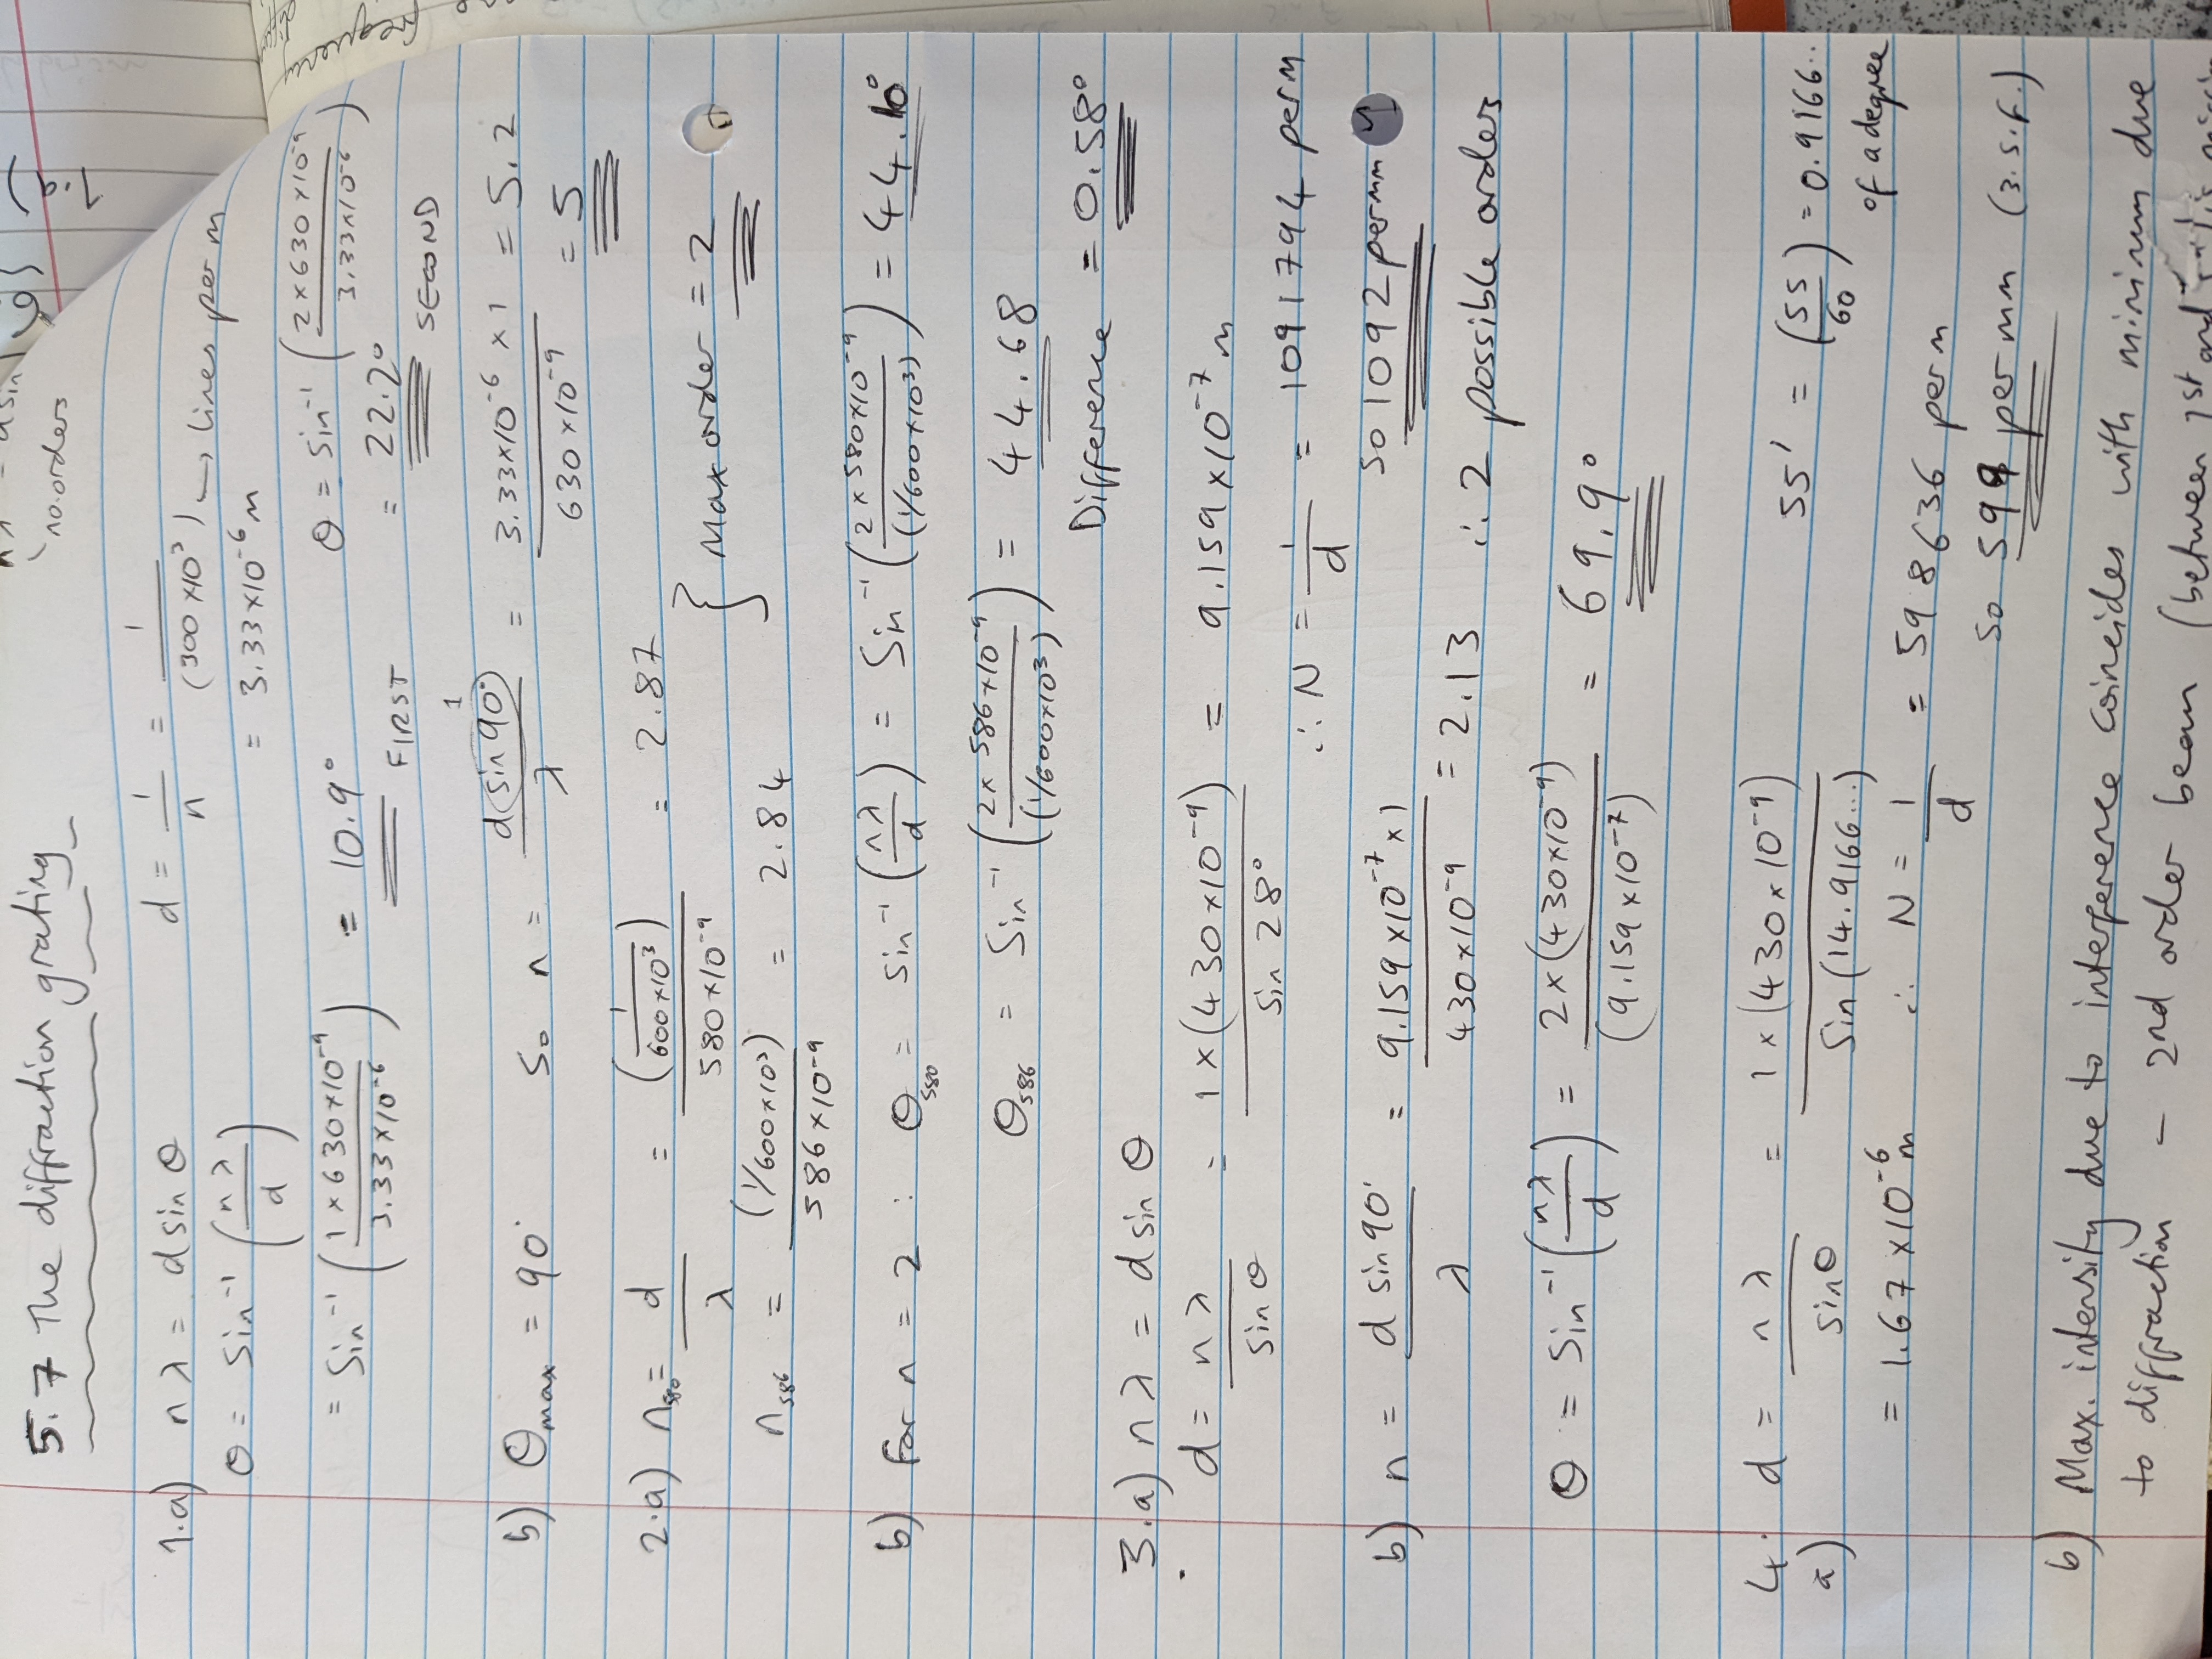 5.7 The diffraction grating
1.a) nλ = dsinθ d = 1/n = 1/(300×10³) → lines per m
θ = Sin⁻¹(nλ/d) = 3.33×10⁻⁶m
= Sin⁻¹(1×630×10⁻⁹/3.33×10⁻⁶) = 10.9° FIRST θ = Sin⁻¹(2×630×10⁻⁹/3.33×10⁻⁶)
= 22.2° SECOND
b) θmax = 90° So n = dsin90°/λ = 3.33×10⁻⁶×1/630×10⁻⁹ = 5.2
1
= 5
2.a) n₅₈₀ = d/λ = (1/600×10³)/580×10⁻⁹ = 2.87
n₅₈₆ = (1/600×10³)/586×10⁻⁹ = 2.84 } Max order = 2
b) For n = 2 : θ₅₈₀ = Sin⁻¹(nλ/d) = Sin⁻¹(2×580×10⁻⁹/(1/600×10³)) = 44.10°
θ₅₈₆ = Sin⁻¹(2×586×10⁻⁹/(1/600×10³)) = 44.68
Difference = 0.58°
3.a) nλ = dsinθ
d = nλ/sinθ = 1×(430×10⁻⁹)/Sin28° = 9.159×10⁻⁷m
∴ N = 1/d = 1091794 per m
so 1092 per mm
b) n = dsin90°/λ = 9.159×10⁻⁷×1/430×10⁻⁹ = 2.13 ∴ 2 possible orders
θ = Sin⁻¹(nλ/d) = 2×(430×10⁻⁹)/(9.159×10⁻⁷) = 69.9°
4. a) d = nλ/sinθ = 1×(430×10⁻⁹)/Sin(14.9166...) 55' = (55/60) = 0.9166..
of a degree
= 1.67×10⁻⁶m ∴ N = 1/d = 598636 per m
So 599 per mm (3.s.f.)
b) Max. intensity due to interference coincides with minimum due
to diffraction – 2nd order beam (between 1st and
no.orders